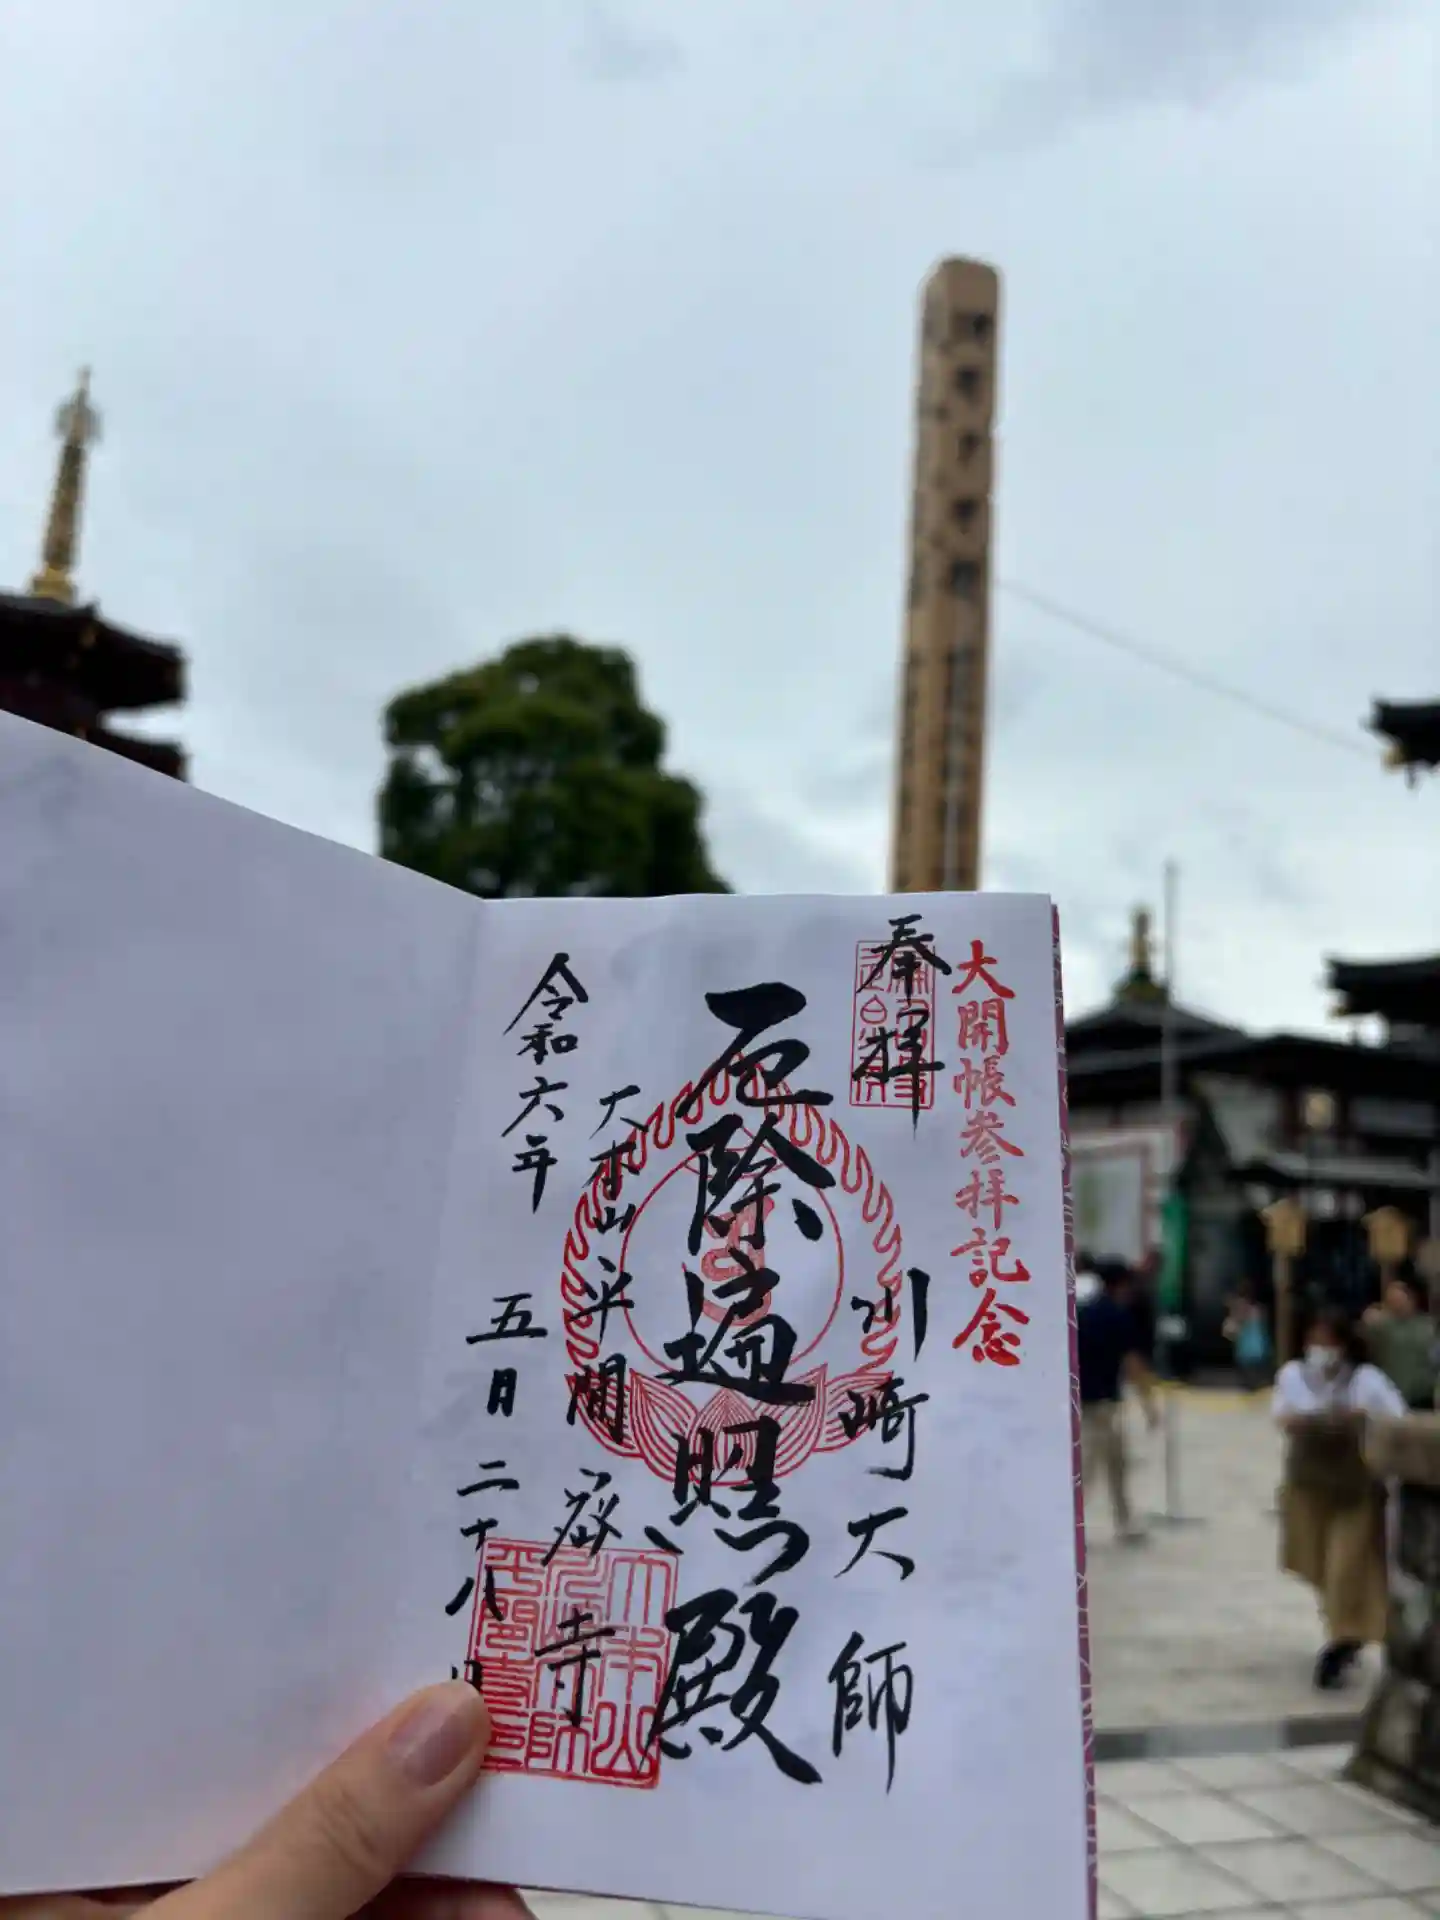 大開帳参拝記念
奉拝
川崎大師
厄除遍照殿
大本山平間寺
令和六年五月二十八日